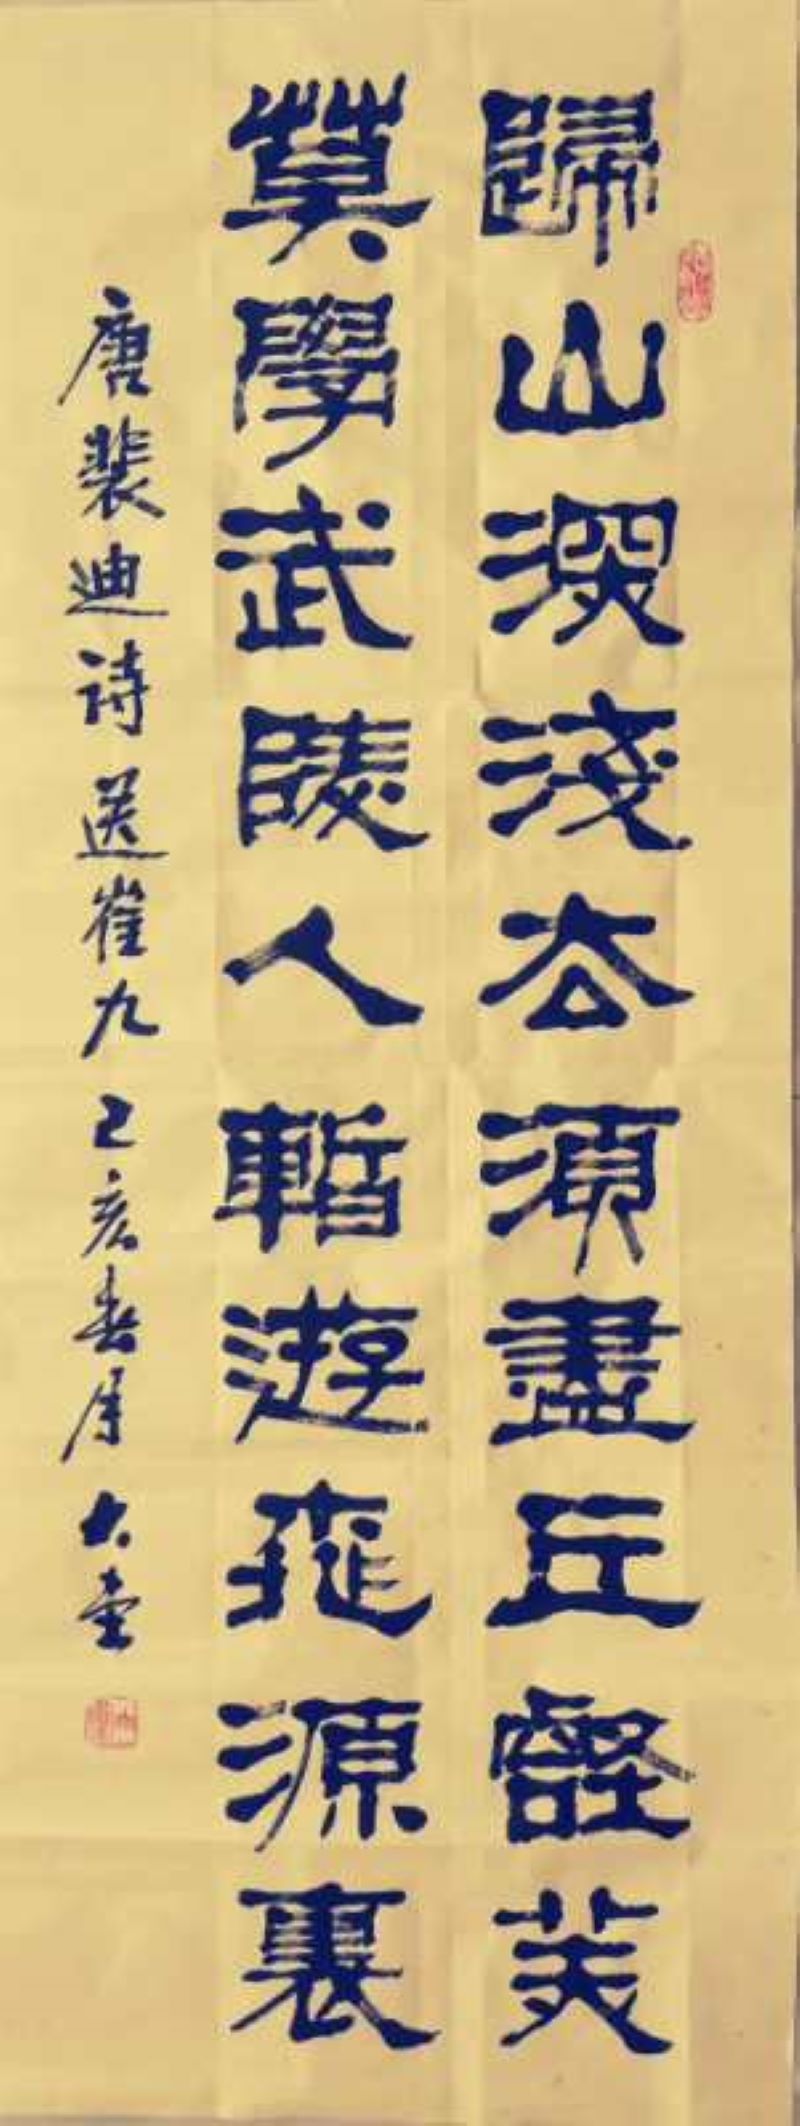 歸山深淺去須盡丘壑美
莫學武陵人暫遊桃源裏
唐裴迪诗送崔九己亥春月大壷